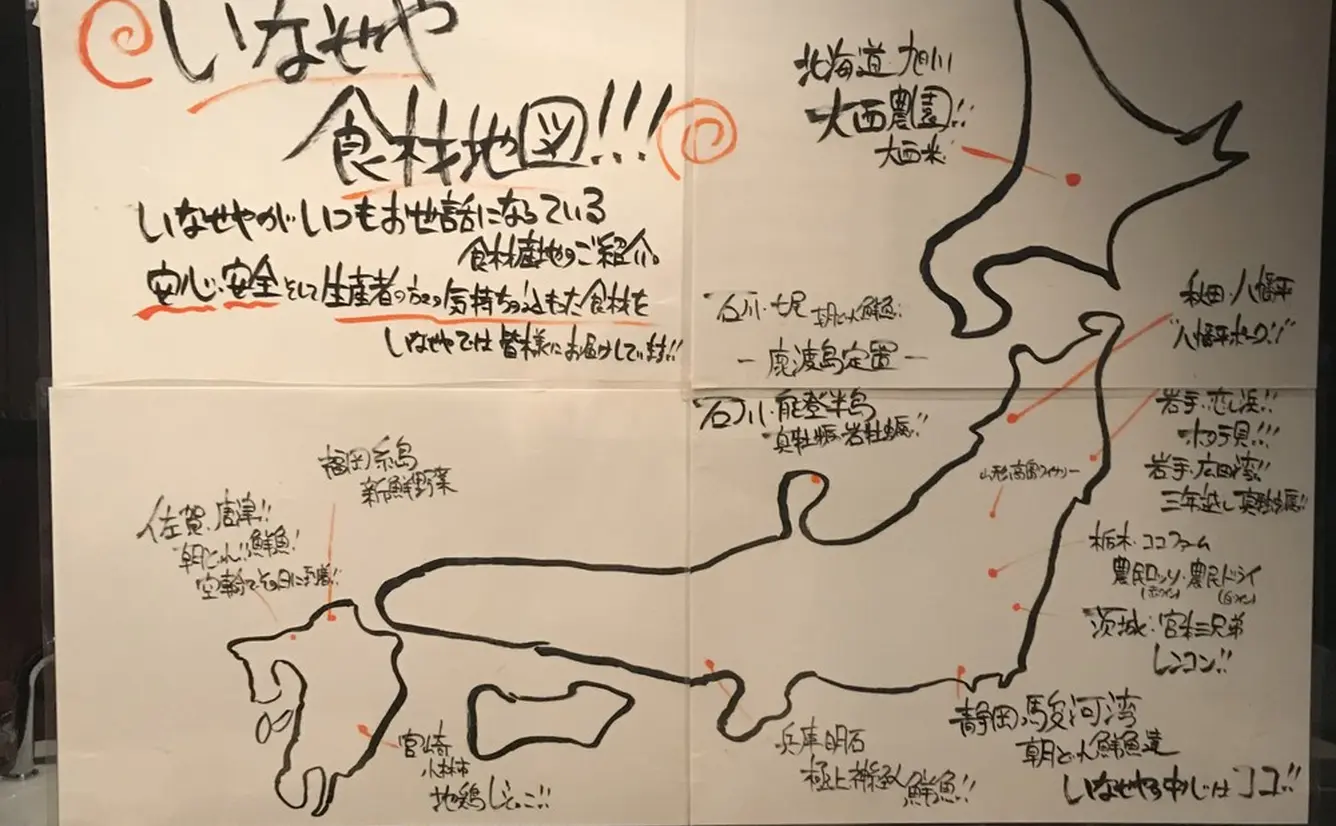 いなせや
食材地図!!!
いなせやがいつもお世話になっている
食材産地のご紹介。
安心・安全そして生産者の方々の気持ちの込もった食材を
いなせやでは皆様にお届けしています!!
北海道・旭川
大西農園!!
大西米
石川・七尾 朝どれ鮮魚!
ー鹿渡島定置ー
石川・能登半島
真牡蠣・岩牡蠣!!
秋田・八幡平
"八幡平ポーク!!"
岩手・恋し浜!!
ホタテ貝!!!
岩手・広田湾!!
三年越し真牡蠣!!
山形 高畠ワイナリー
栃木・ココファーム
農民ロッソ・農民ドライ
(赤ワイン) (白ワイン)
茨城・宮本三兄弟
レンコン!!
福岡糸島
新鮮野菜
佐賀・唐津!!
朝どれ!!鮮魚!
空輸でその日に到着!!
宮崎
小林市
地鶏じとっこ!!
兵庫明石
極上神経〆鮮魚!!
静岡・駿河湾
朝どれ鮮魚達
いなせやの中心はココ!!